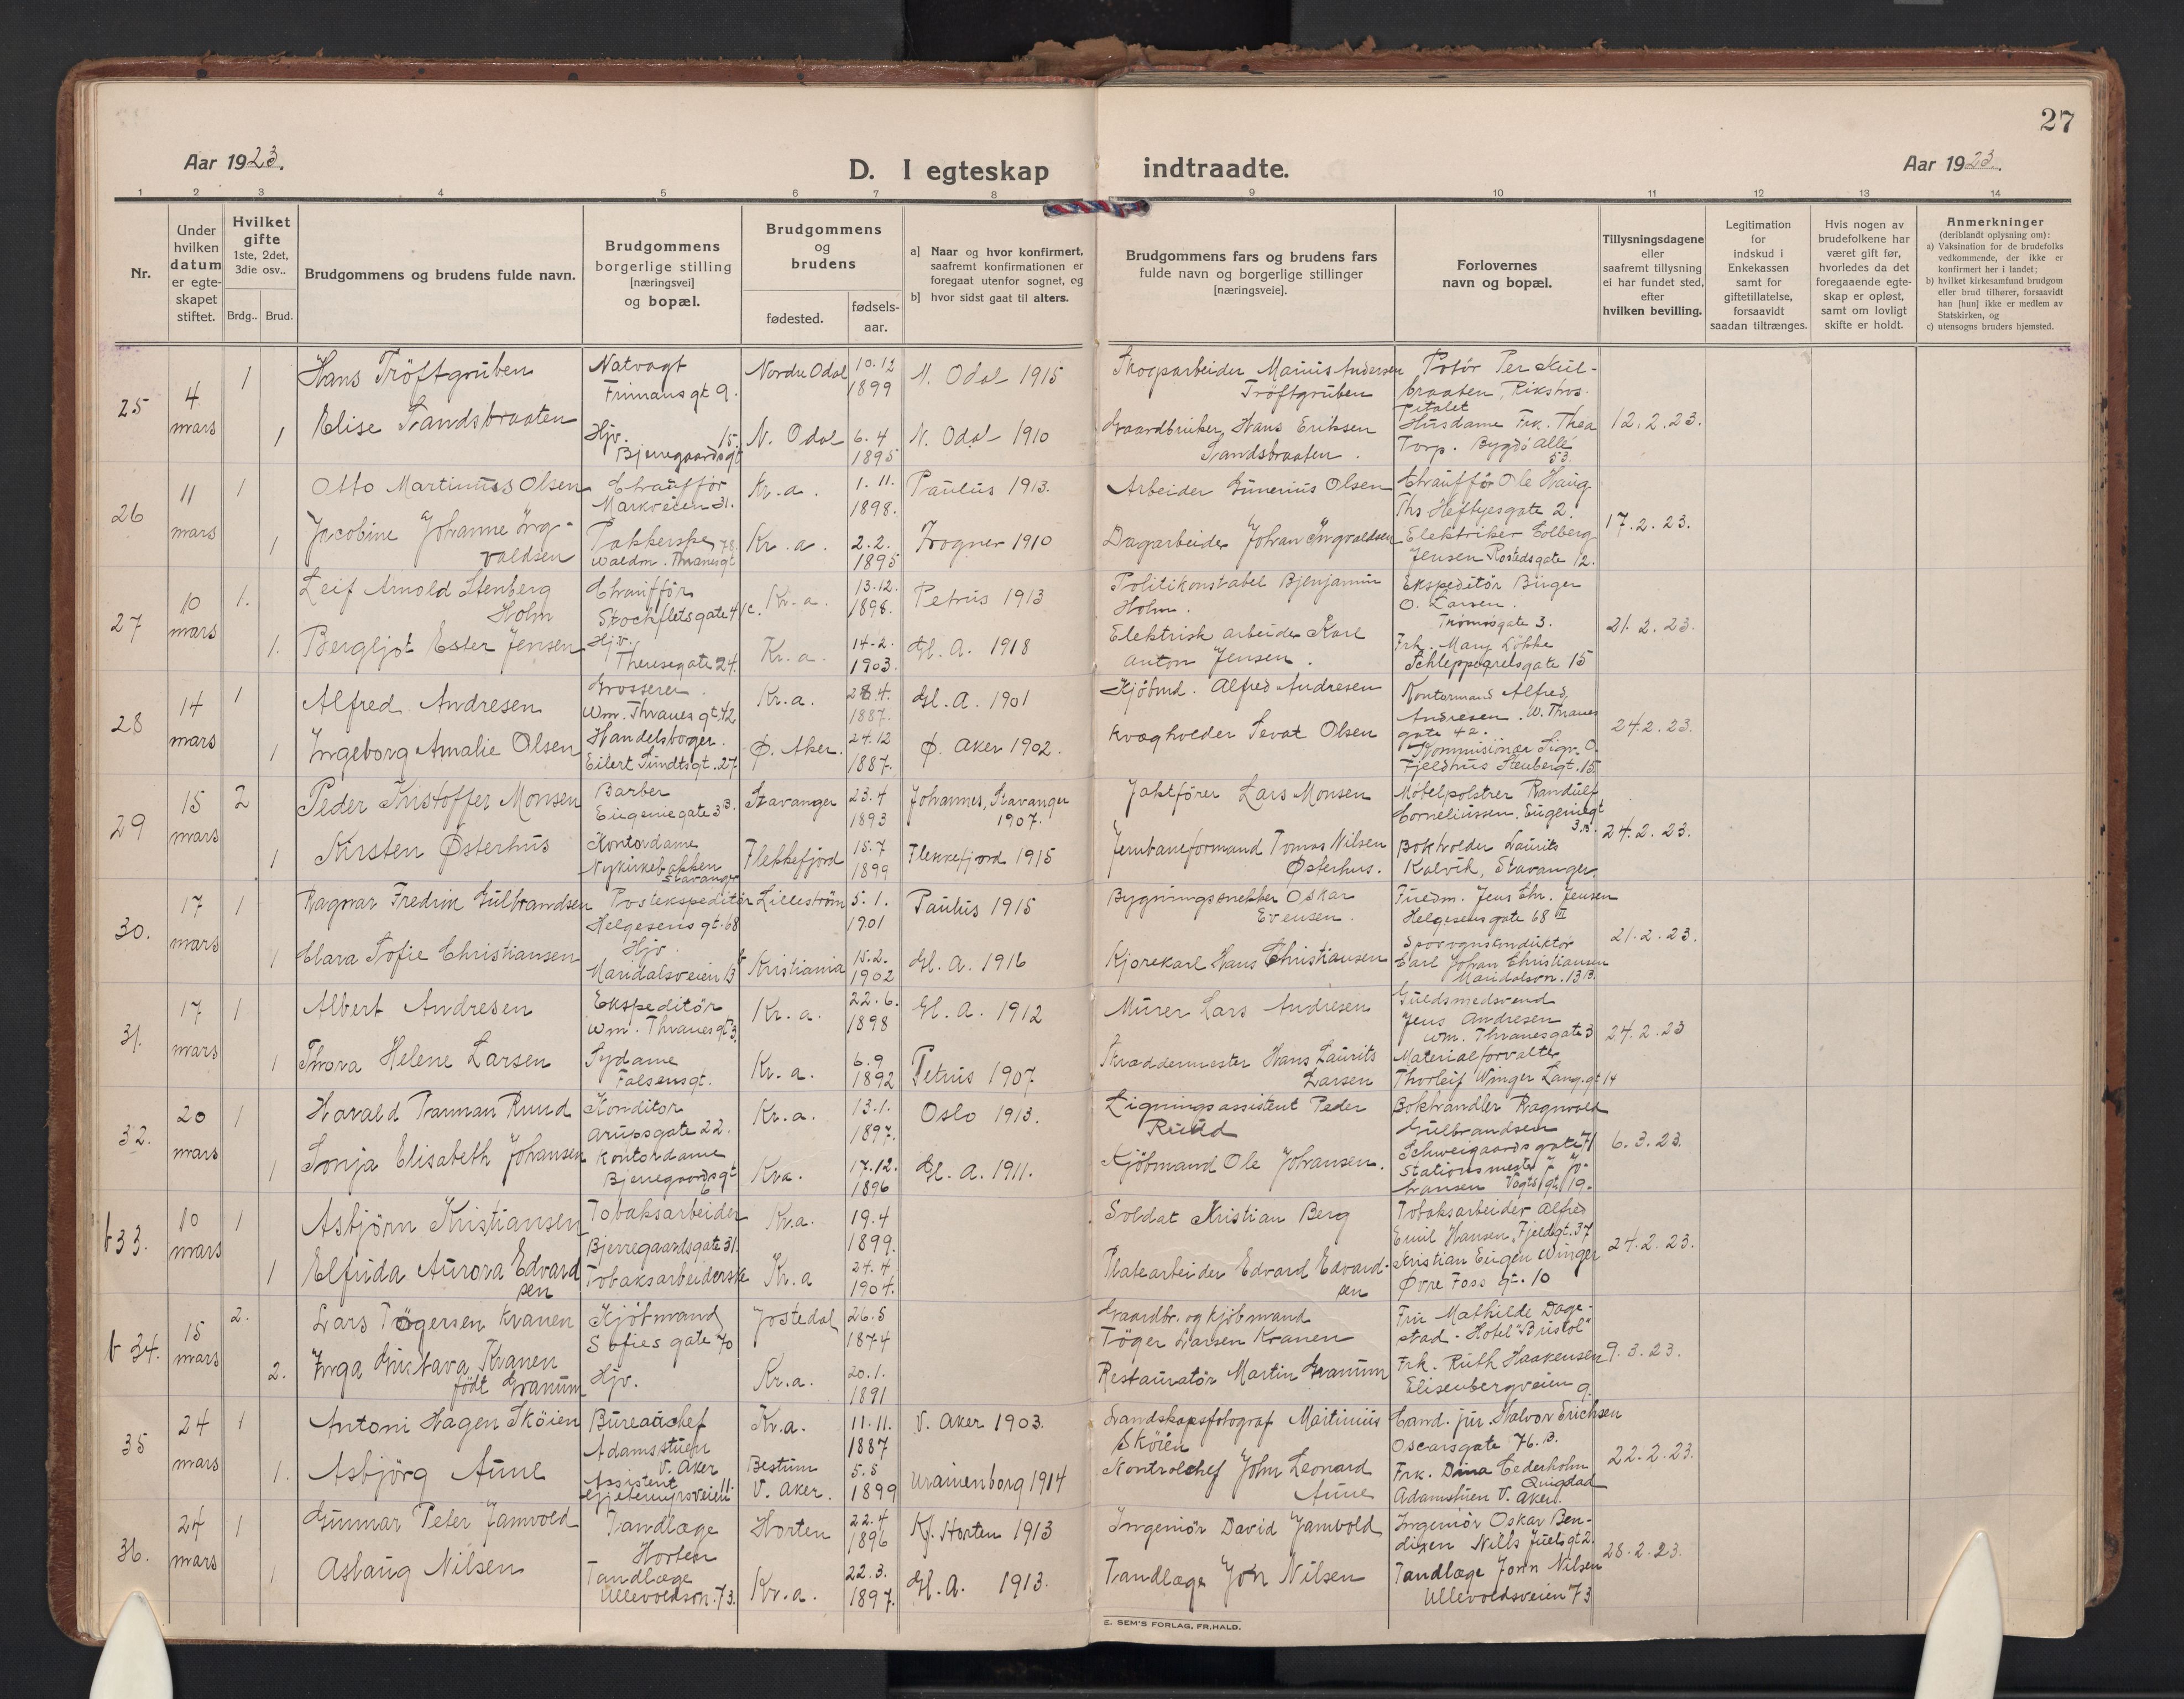 27
Aar 1923.
D. I egteskap indtraadte.
Aar 1923.
1 2 3 4 5 6 7 8 9 10 11 12 13 14
Nr.
Under hvilken datum er egteskapet stiftet.
Hvilket gifte 1ste, 2det, 3die osv..
Brdg.. Brud.
Brudgommens og brudens fulde navn.
Brudgommens borgerlige stilling [næringsvei] og bopæl.
Brudgommens og brudens
fødested.
fødsels-aar.
a] Naar og hvor konfirmert, saafremt konfirmationen er foregaat utenfor sognet, og
b] hvor sidst gaat til alters.
Brudgommens fars og brudens fars fulde navn og borgerlige stillinger [næringsveie].
Forlovernes navn og bopæl.
Tillysningsdagene eller saafremt tillysning ei har fundet sted, efter hvilken bevilling.
Legitimation for indskud i Enkekassen samt for giftetillatelse, forsaavidt saadan tiltrænges.
Hvis nogen av brudefolkene har været gift før, hvorledes da det foregaaende egteskap er opløst, samt om lovligt skifte er holdt.
Anmerkninger
(deriblandt oplysning om):
a) Vaksination for de brudefolks vedkommende, der ikke er konfirmert her i landet;
b) hvilket kirkesamfund brudgom eller brud tilhører, forsaavidt han [hun] ikke er medlem av Statskirken, og
c) utensogns bruders hjemsted.
25 4 mars 1 Hans Tröftgruben Natvagt Frimansgt 9. Nordre Odal 10.12 1899 N. Odal 1915 Skogsarbeider Marius Andersen Tröftgruben Portör Per Kulbraaten, Rikshospitalet
1 Elise Sandsbraaten Hjv. Bjerregaardsgt 15. N. Odal 6.4 1895 N. Odal 1910 Gaardbruker Hans Eriksen Sandsbraaten. Husdame Frk. Thea Torp. Bygdö Allé 53. 12.2.23.
26 11 mars 1 Otto Martinuss Olsen Chaufför Markveien 31. Kr.a. 1.11. 1898. Paulus 1913. Arbeider Gunerius Olsen Chaufför Ole Haug Ths Heftyesgate 2.
1 Jacobine Johanne Ingvaldsen Pakkerske Waldm. Thranesgt 78. Kr.a. 2.2. 1895 Frogner 1910 Dagarbeider Johan Ingvaldsen Elektriker Solberg Jensen Rostedsgate 12. 17.2.23.
27 10 mars 1. Leif Arnold Stenberg Holm Chaufför Stockfletsgate 41c. Kr.a. 13.12. 1898. Petrus 1913 Politikonstabel Bjenjamin Holm. Ekspeditör Birger O. Larsen. Tromsögate 3.
1. Bergljot Ester Jensen Hjv. Theresegate 24. Kr.a. 14-2. 1903. Gl. A. 1918 Elektrisk arbeider Karl Anton Jensen. Frk. Mary Lökke Schleppegrelsgate 15 21.2.23.
28 14 mars 1 Alfred Andresen Grosserer. Wm. Thranes gt. 42 Kr.a. 28.4. 1887. Gl. A. 1901 Kjöbmd. Alfred Andresen Kontormand Alfred Andresen. W. Thranes gate 42.
1 Ingeborg Amalie Olsen Handelsborger. Eilert Sundtsgt. 27 Ö. Aker. 24.12 1887. Ö. Aker 1902. Kvægholder Sevat Olsen Kommisionær Sigv. O. Fjeldhus Steubergt. 15 24.2.23.
29 15 mars 2 Peder Kristoffer Monsen Barber Eugeniegate 3B. Stavanger 23.4 1893 Johannes, Stavanger 1907. Jaktförer Lars Monsen Möbelpolstrer Randulf Corneliussen, Eugeniegt 3B.
1 Kirsten Østerhus Kontordame Nykirkebakken Stavanger Flekkefjord 15.7 1899 Flekkefjord 1915 Jernbaneformand Tomas Nilsen Østerhus. Bokholder Laurits Kalvik, Stavanger 24.2.23.
30. 17 mars 1 Ragnar Fredrik Gulbrandsen Postekspeditör Helgesens gt. 68 Lilleström 5.1. 1901 Paulus 1915 Bygningssnekker Oskar Evensen. Furedm. Jens Chr. Jensen Helgesens gate 68 III
1 Clara Sofie Christiansen Hjv. Maridalsveien 13b Kristiania 15.2. 1902 Gl. A. 1916 Kjørekarl Hans Christiansen Sporvognskonduktör Carl Johan Christiansen Maridalsvn. 13B. 21.2.23.
31. 17 mars 1 Albert Andresen Ekspeditör Wm. Thranesgt 3. Kr.a. 22.6. 1898 Gl. A. 1912 Murer Lars Andresen Guldsmedsvend Jens Andresen Wm. Thranesgate 3
1 Thora Helene Larsen Sydame Falsensgt. Kr.a. 6.9 1892 Petrus 1907 Skræddermester Hans Laurits Larsen Materialforvalter Thorleif Winger Langgt 14 24.2.23
32. 20 mars 1 Harald Ruud Konditor Arupsgate 22. Kr.a. 13.1. 1897. Oslo 1913. Ligningsassistent Peder Ruud Bokhandler Ragnvald Gulbrandsen Schweigaardsgate 71
1 Sonja Elisabeth Johansen Kontordame Bjerregaardsgt 6 Kra. 17.12. 1896 Gl. A. 1911. Kjöbmand Ole Johansen. Stationsmester J. Johansen Vogtsgt 19. 6.3.23.
b 33. 10 mars 1 Asbjörn Kristiansen Tobaksarbeider Bjerregaardsgate 31. Kr.a. 19.4 1899. Soldat Kristian Berg Tobaksarbeider Alfred Emil Hansen, Fjeldgt. 37
1 Elfrida Aurora Edvardsen Tobaksarbeiderske Kr.a 24.4 1904. Platearbeider Edvard Edvardsen Kristian Eugen Winger Øvre Foss gt. 10 24.2.23.
b 34. 15 mars 2. Lars Tögersen Kranen Kjöbmand Sofies gate 70 Jostedal 26.5 1874 Gaardbr. og kjöbmand Töger Larsen Kranen Fru Mathilde Dagestad - Hotel "Bristol"
2. Inga Gustava Kranen födt Granum Hjv. Kr.a. 20.1. 1891 Restauratör Martin Granum Frk. Ruth Haakensen Elisenbergveien 9. 9.3.23.
35 24 mars 1 Antoni Hagen Sköien Bureauchef Adamsstuen V. Aker Kr.a. 11.11. 1887 V. Aker 1903. Landskapsfotograf Martinius Sköien Cand. jur. Halvor Erichsen Oscarsgate 76.B.
1. Asbjörg Aune Assistent Gjetemyrsveien 11. Bestum V. Aker. 5.5 1899 Uranienborg 1914 Kontrolchef John Leonard Aune Frk. Dina Cederholm Quigstad Adamstuen V. Aker. 22.2.23.
36. 24 mars 1 Gunnar Peter Jamvold Tandlæge Horten Horten 22.4 1896 Kf. Horten 1913 Ingeniör David Jamvold Ingeniör Oskar Bendixen Nills Juels gt 2.
1 Aslaug Nilsen Tandlæge Ullevoldsvn. 73. Kr.a. 22.3. 1897. Gl. A. 1913. Tandlæge Jon Nilsen Tandlæge John Nilsen Ullevoldsveien 73 28.2.23.
E. SEM'S FORLAG, FR.HALD.